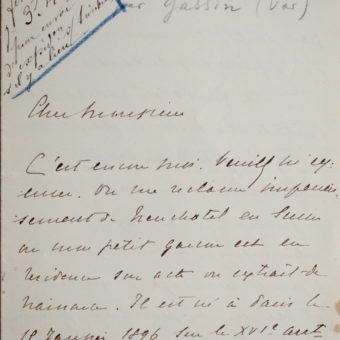 3
par Gassin (Var)
Cher Monsieur
C'est encore moi. Veuillez m'ex-
cuser. On me réclame impérieu-
sement de Neuchatel en Suisse
où mon petit garçon est en
résidence un acte ou extrait de
naissance. Il est né à Paris le
18 Janvier 1896 sur le XVIe arrt